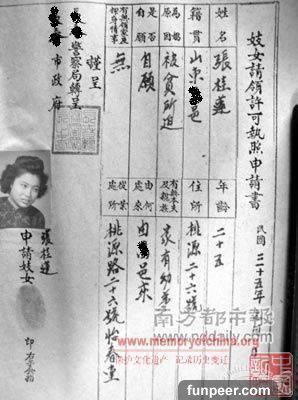 妓女請領許可執照申請書
民國三十五年
姓名 張桂蓮 年齡 二十五
籍貫 山東 邑 住所 桃源路二十六號
為娼原因 被貧所迫 家有幼弟
是否自願 自願 由何處來 由 邑來
無 從業處所 桃源路二十六號怡春堂
謹呈
警察局轉呈
市政府
張桂蓮
申請妓女
印右
南方都市报
nddaily.com
www.memoryofchina.org
保护文化遗产 记录历史变迁
funpeer.com